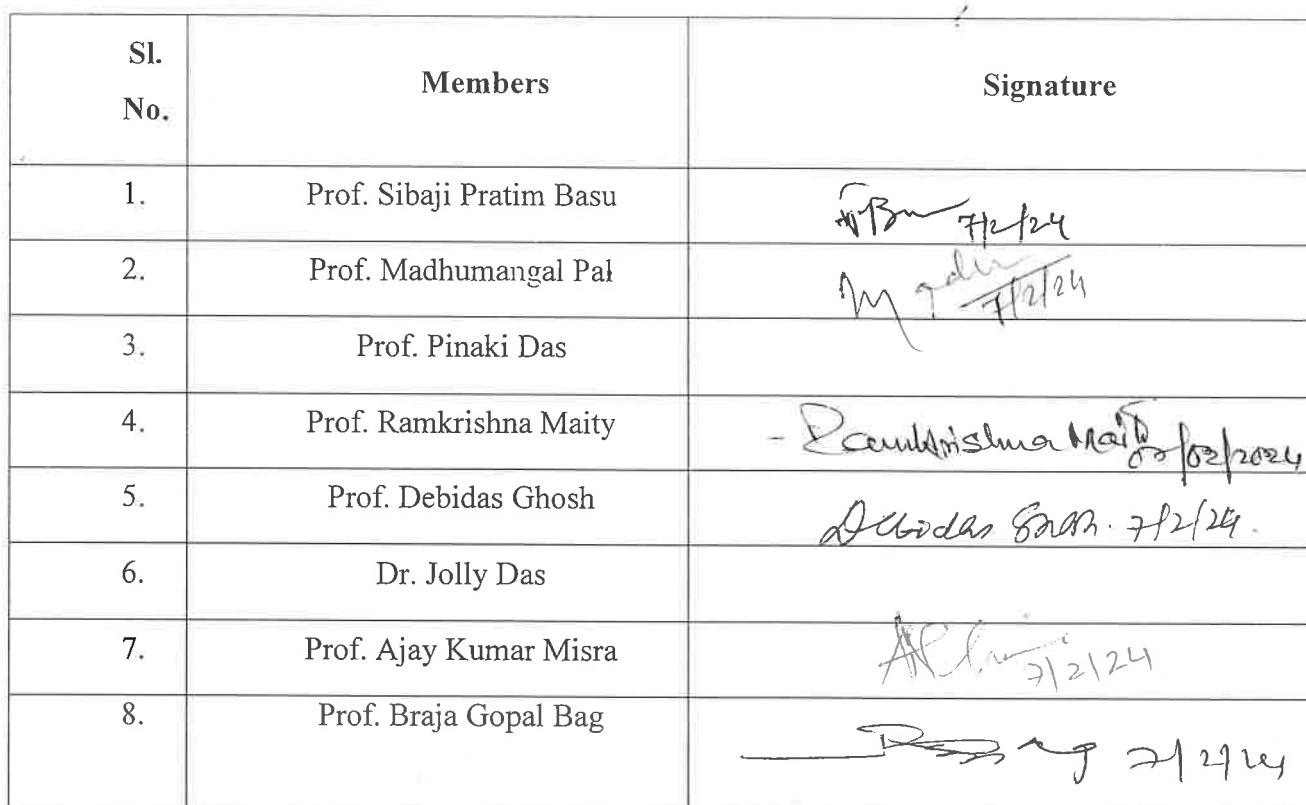 Sl. No. Members Signature
1. Prof. Sibaji Pratim Basu 7/2/24
2. Prof. Madhumangal Pal 7/2/24
3. Prof. Pinaki Das
4. Prof. Ramkrishna Maity - Ramkrishna Maity 07/02/2024
5. Prof. Debidas Ghosh Debidas Ghosh. 7/2/24.
6. Dr. Jolly Das
7. Prof. Ajay Kumar Misra 7/2/24
8. Prof. Braja Gopal Bag 7/2/24